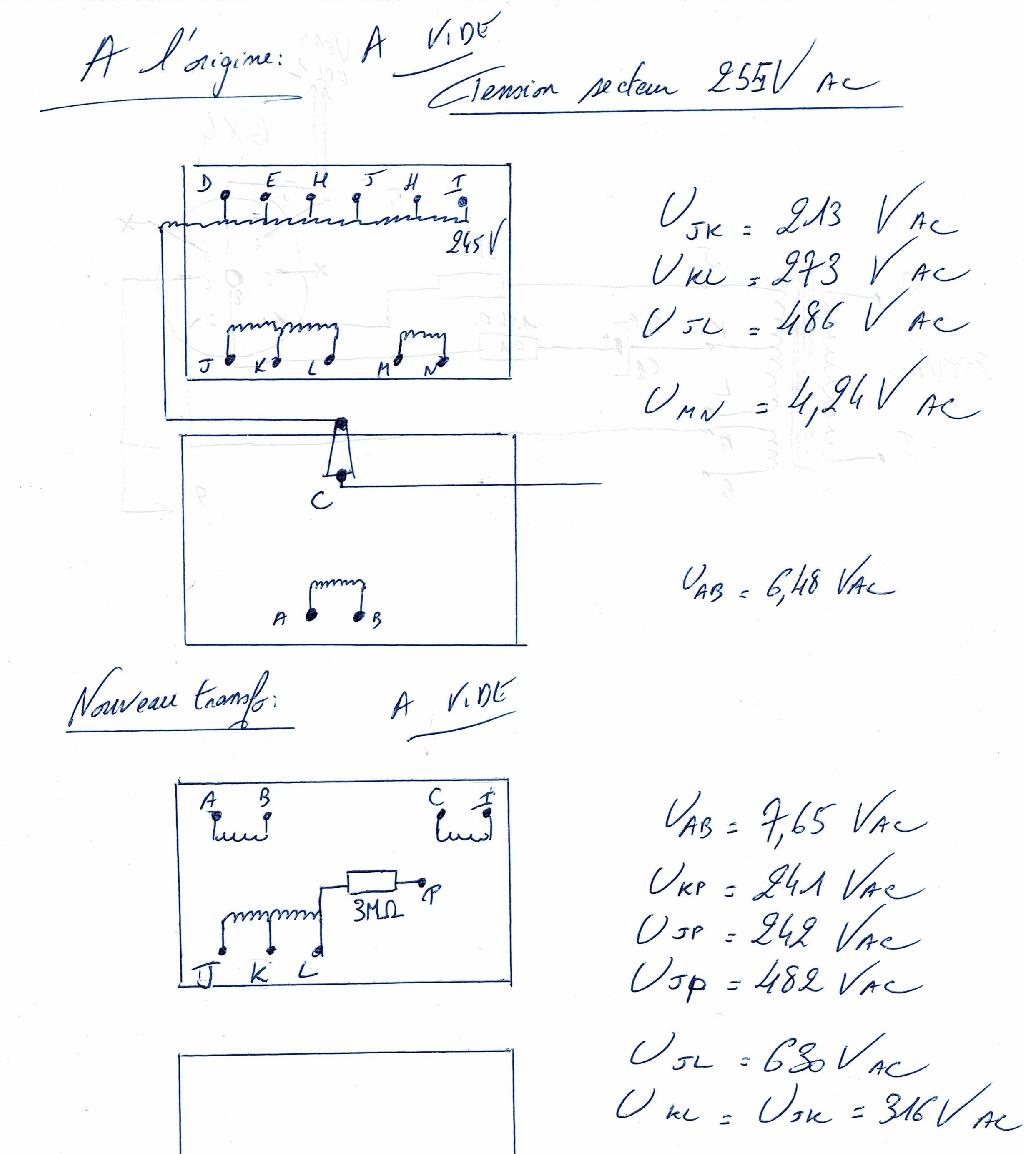 A l'origine: A VIDE
Tension secteur V AC
D E H J H I
245V
U JK = 213 V AC
U KL = 273 V AC
U JL = 486 V AC
J K L M N
U MN = 4,24 V AC
C
U AB = 6,48 VAC
A B
Nouveau transfo: A VIDE
A B C I
U AB = 7,65 VAC
3MΩ P
U KP = 241 VAC
U JP = 242 VAC
J K L
U JP = 482 VAC
U JL = 630 VAC
U KL = U JK = 316 V AC